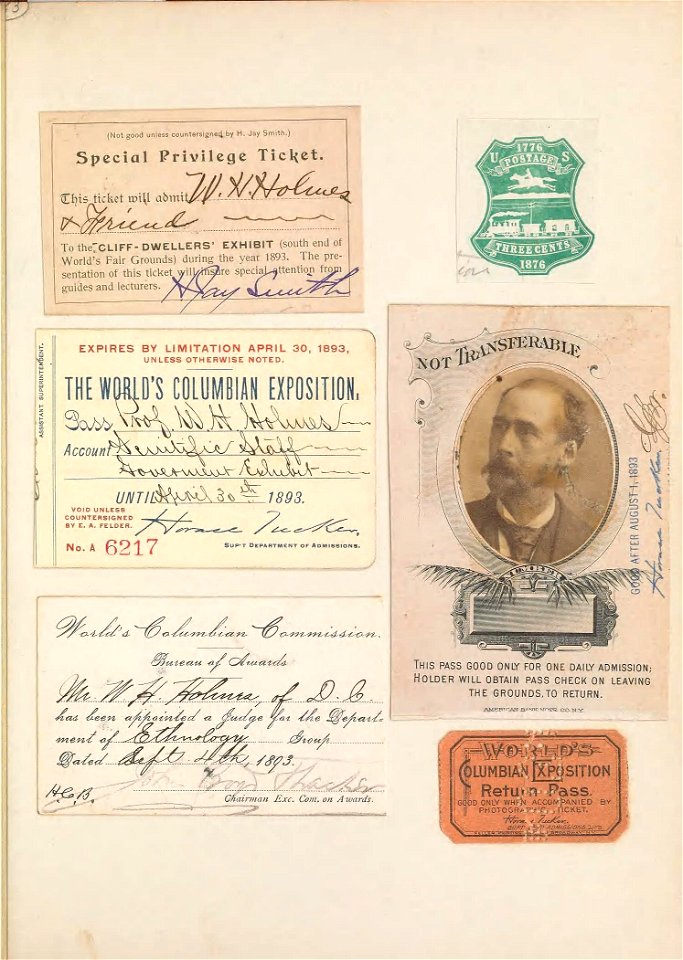 3
(Not good unless countersigned by H. Jay Smith.)
Special Privilege Ticket.
This ticket will admit W. H. Holmes
& Friend
To the "CLIFF-DWELLERS' EXHIBIT (south end of
World's Fair Grounds) during the year 1893. The pre-
sentation of this ticket will insure special attention from
guides and lecturers. H Jay Smith
1776
U S
POSTAGE
THREE CENTS
1876
EXPIRES BY LIMITATION APRIL 30, 1893,
UNLESS OTHERWISE NOTED.
THE WORLD'S COLUMBIAN EXPOSITION.
Pass Prof. W H Holmes
Account Scientific Staff
Government Exhibit
UNTIL April 30th 1893.
VOID UNLESS
COUNTERSIGNED
BY E. A. FELDER.
Horace Tucker.
No. A 6217
SUP'T DEPARTMENT OF ADMISSIONS.
ASSISTANT SUPERINTENDENT.
NOT TRANSFERABLE
GOOD AFTER AUGUST 1, 1893
Horace Tucker
THIS PASS GOOD ONLY FOR ONE DAILY ADMISSION;
HOLDER WILL OBTAIN PASS CHECK ON LEAVING
THE GROUNDS, TO RETURN.
AMERICAN BANK NOTE CO. N.Y.
World's Columbian Commission.
Bureau of Awards
Mr. W. H. Holmes, of D. C.
has been appointed a Judge for the Depart-
ment of Ethnology Group
Dated Sept 4th, 1893.
H.C.B. John Boyd Thacher
Chairman Exc. Com. on Awards.
WORLD'S
COLUMBIAN EXPOSITION
Return Pass.
GOOD ONLY WHEN ACCOMPANIED BY
PHOTOGRAPHIC TICKET.
Horace Tucker
SUPT. OF ADMISSIONS